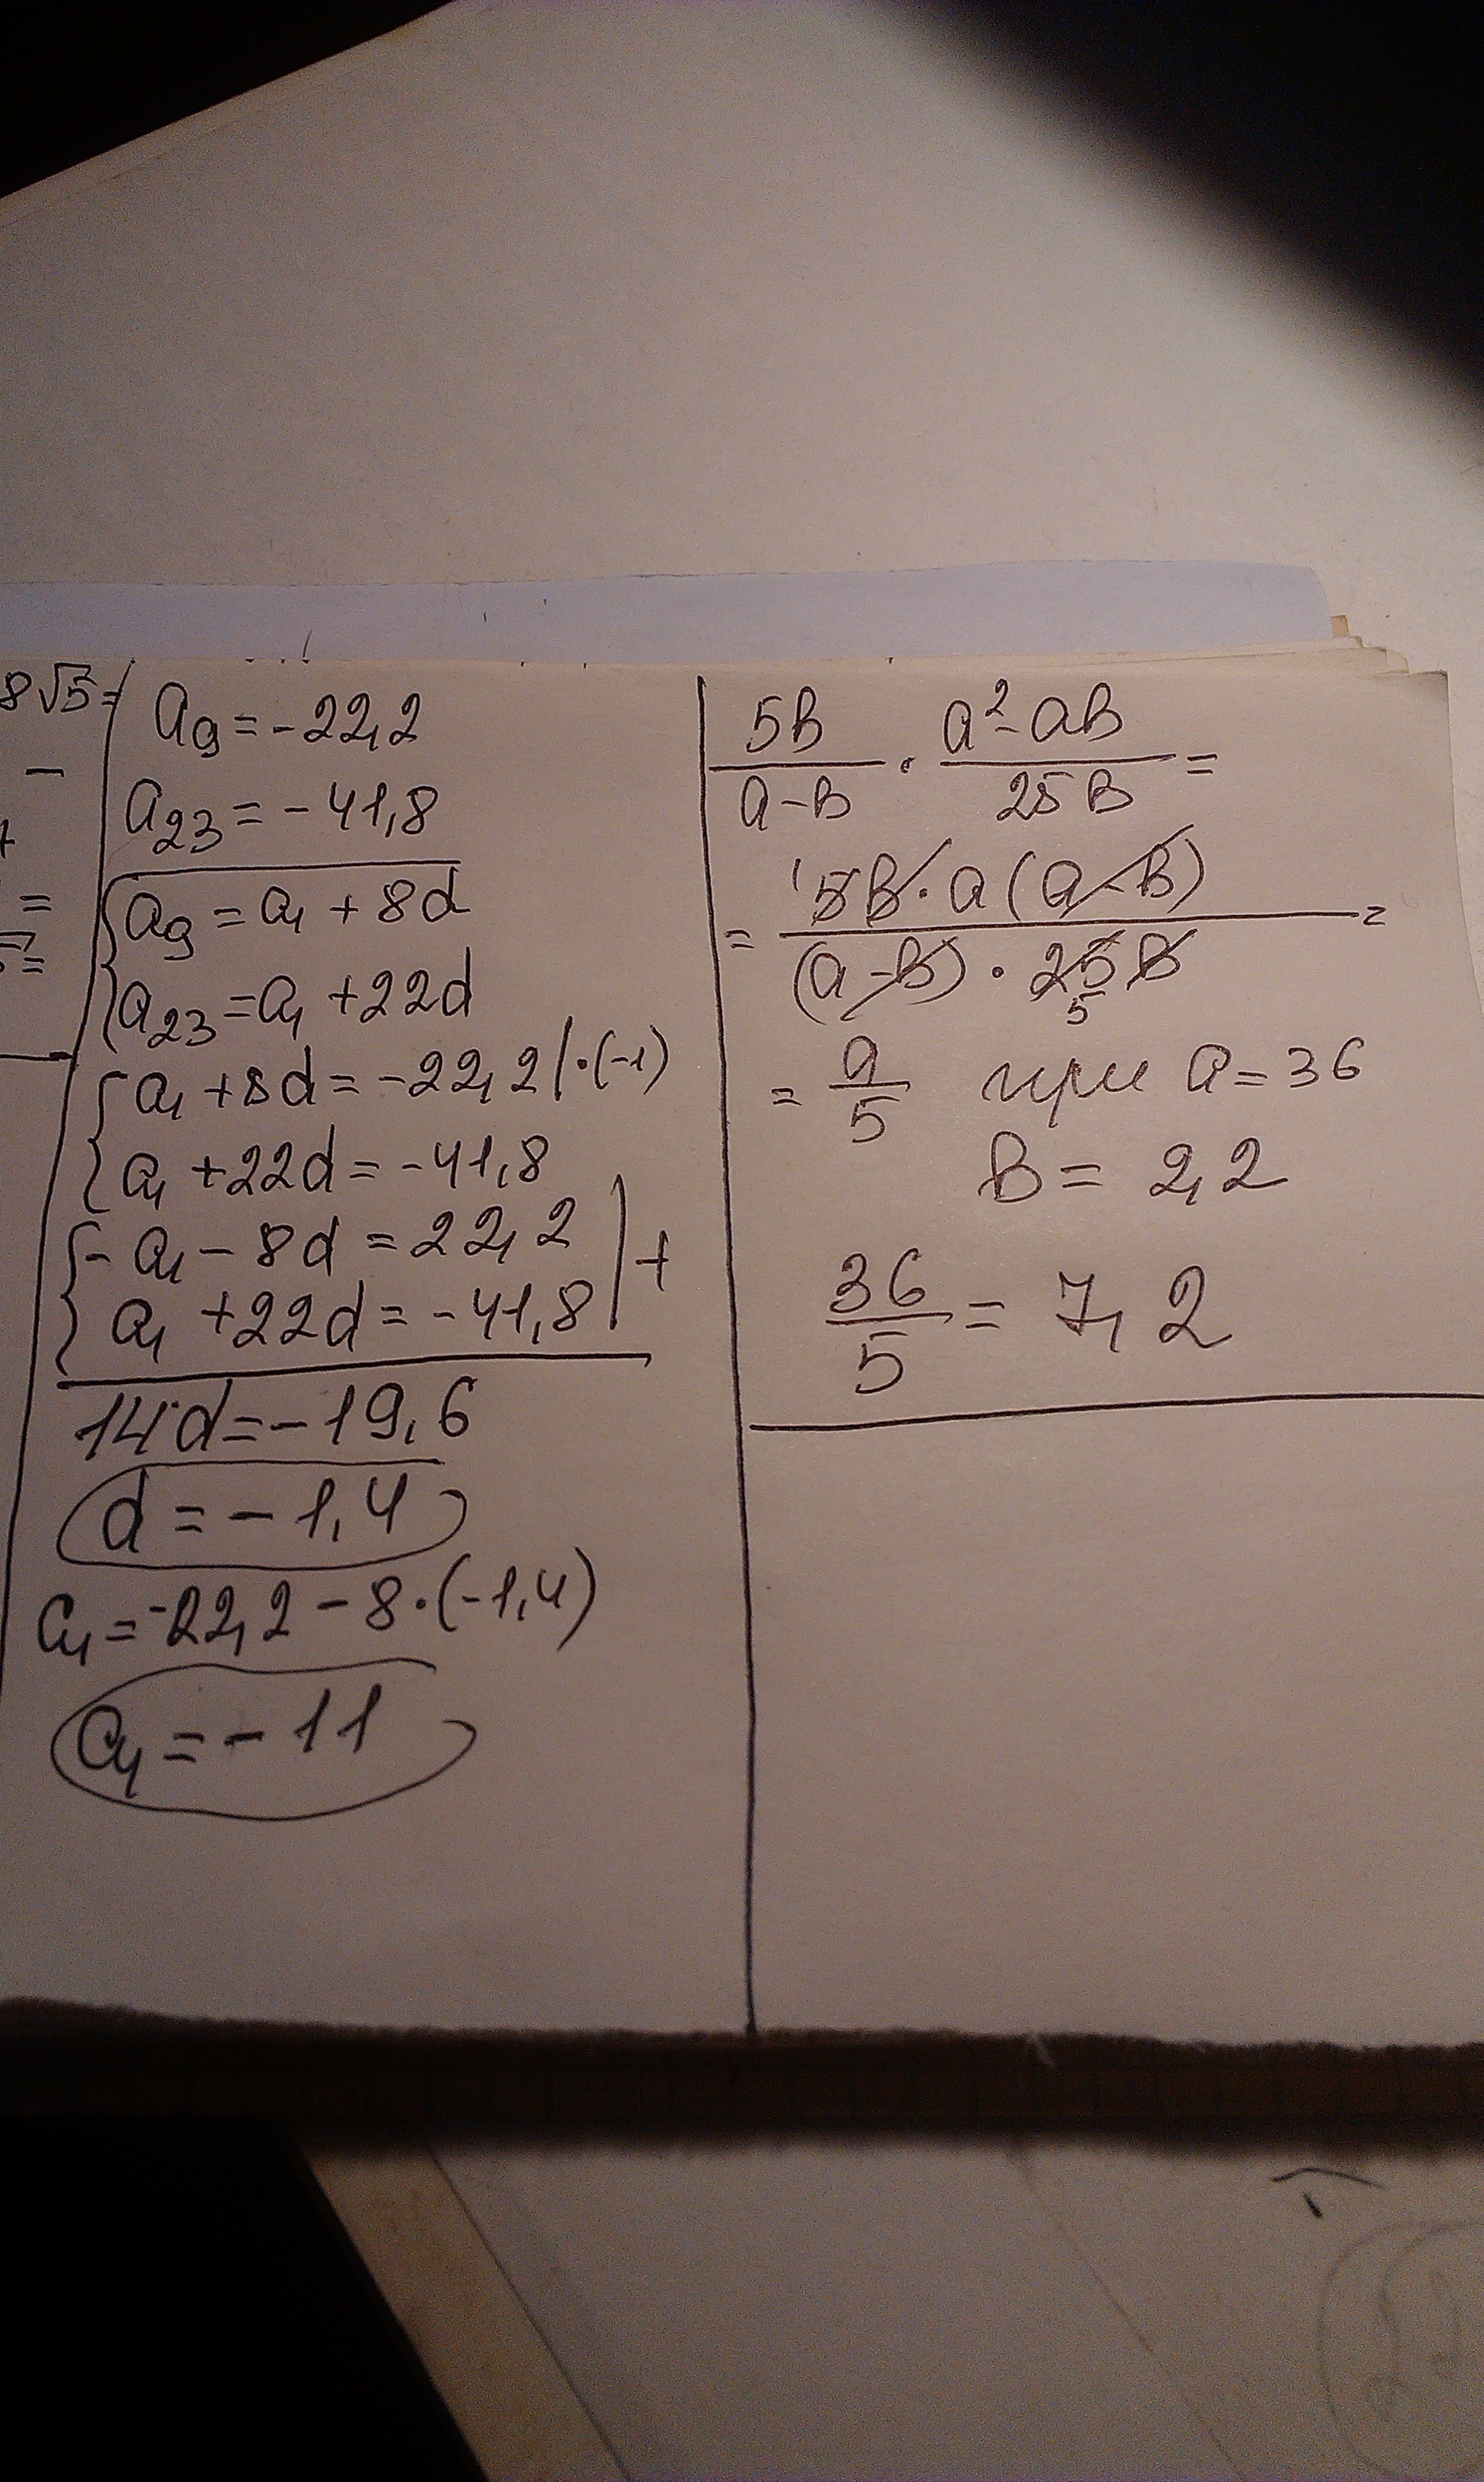 8√5=
−
=
=
a₉ = -22,2
a₂₃ = -41,8
{a₉ = a₁ + 8d
{a₂₃ = a₁ + 22d
{a₁ + 8d = -22,2 | · (-1)
{a₁ + 22d = -41,8
{-a₁ - 8d = 22,2 | +
{a₁ + 22d = -41,8
14d = -19,6
d = -1,4
a₁ = -22,2 - 8 · (-1,4)
a₁ = -11
5в/(а-в) · (а²-ав)/(25в) =
= (5в · а(а-в))/((а-в) · 25в) =
1
5
= а/5 при а = 36
в = 2,2
36/5 = 7,2